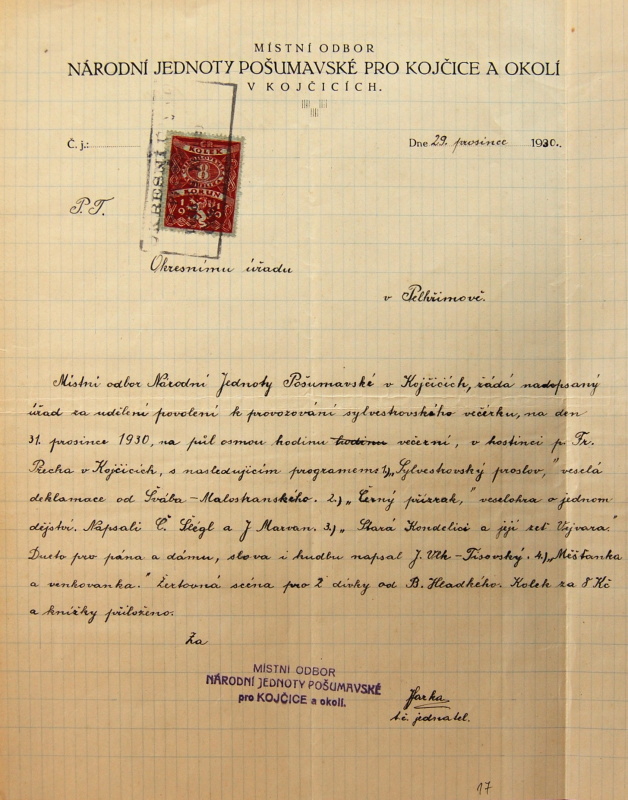 MÍSTNÍ ODBOR
NÁRODNÍ JEDNOTY POŠUMAVSKÉ PRO KOJČICE A OKOLÍ
V KOJČICÍCH.
Č. j.:
Dne 29. prosince 1930.
KOLEK
8
KORUN
P. T.
Okresnímu úřadu
v Pelhřimově.
Místní odbor Národní Jednoty Pošumavské v Kojčicích, žádá nadepsaný
úřad za udělení povolení k provozování sylvestrovského večírku, na den
31. prosince 1930, na půl osmou hodinu hodinu večerní, v hostinci p. Fr.
Plecha v Kojčicích, s nasledujícím programem: 1.) „Sylvestrovský proslov," veselá
deklamace od Švába-Malostranského. 2.) „Černý přízrak," veselohra o jednom
dějství. Napsali Č. Šlégl a J Marvan. 3.) „Stará Kondelici a její zeť Vejvara."
Dueto pro pána a dámu, slova i hudbu napsal J. Vlk-Tísovský. 4.) „Měšťanka
a venkovanka." Žertovná scéna pro 2 dívky od B. Hladkého. Kolek za 8 Kč
a knížky přiloženo.
Za
MÍSTNÍ ODBOR
NÁRODNÍ JEDNOTY POŠUMAVSKÉ
pro KOJČICE a okolí.
t. č. jednatel.
17